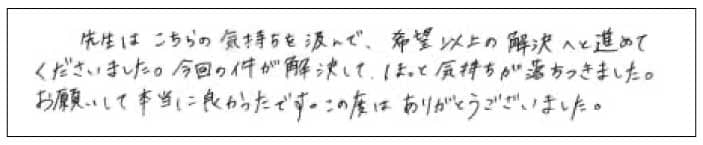 先生はこちらの気持ちを汲んで、希望以上の解決へと進めて
くださいました。今回の件が解決して、ほっと気持ちが落ちつきました。
お願いして本当に良かったです。この度はありがとうございました。